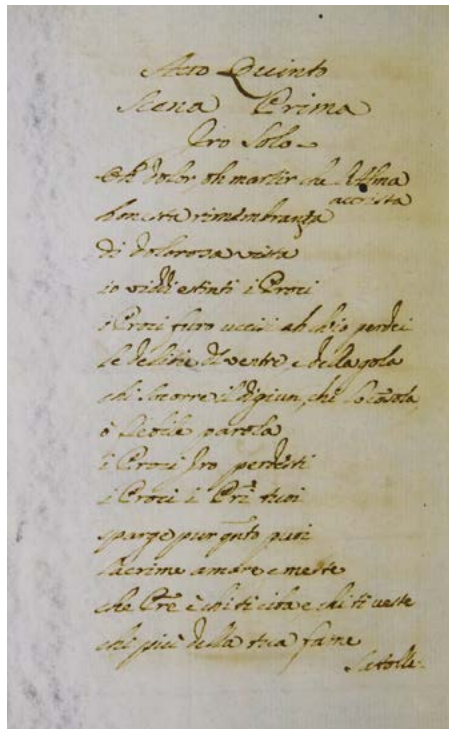 Atto Quinto
Scena Prima
Iro Solo
Oh dolor, oh martir che l'Alma
attrista
honesta rimembranza
di dolorosa vista
io viddi estinti i Proci
i Proci furo uccisi ah ch'io perdei
le delitie del ventre, e della gola
chi socorre il digiun, chi lo cosola,
ò flebile parola
i Proci Iro perdesti
i Proci i Pri tuoi
sparge pur qnto puoi
lacrime amare e meste
che Pre è chi ti ciba e chi ti veste
chi più della tua fame
Satolle